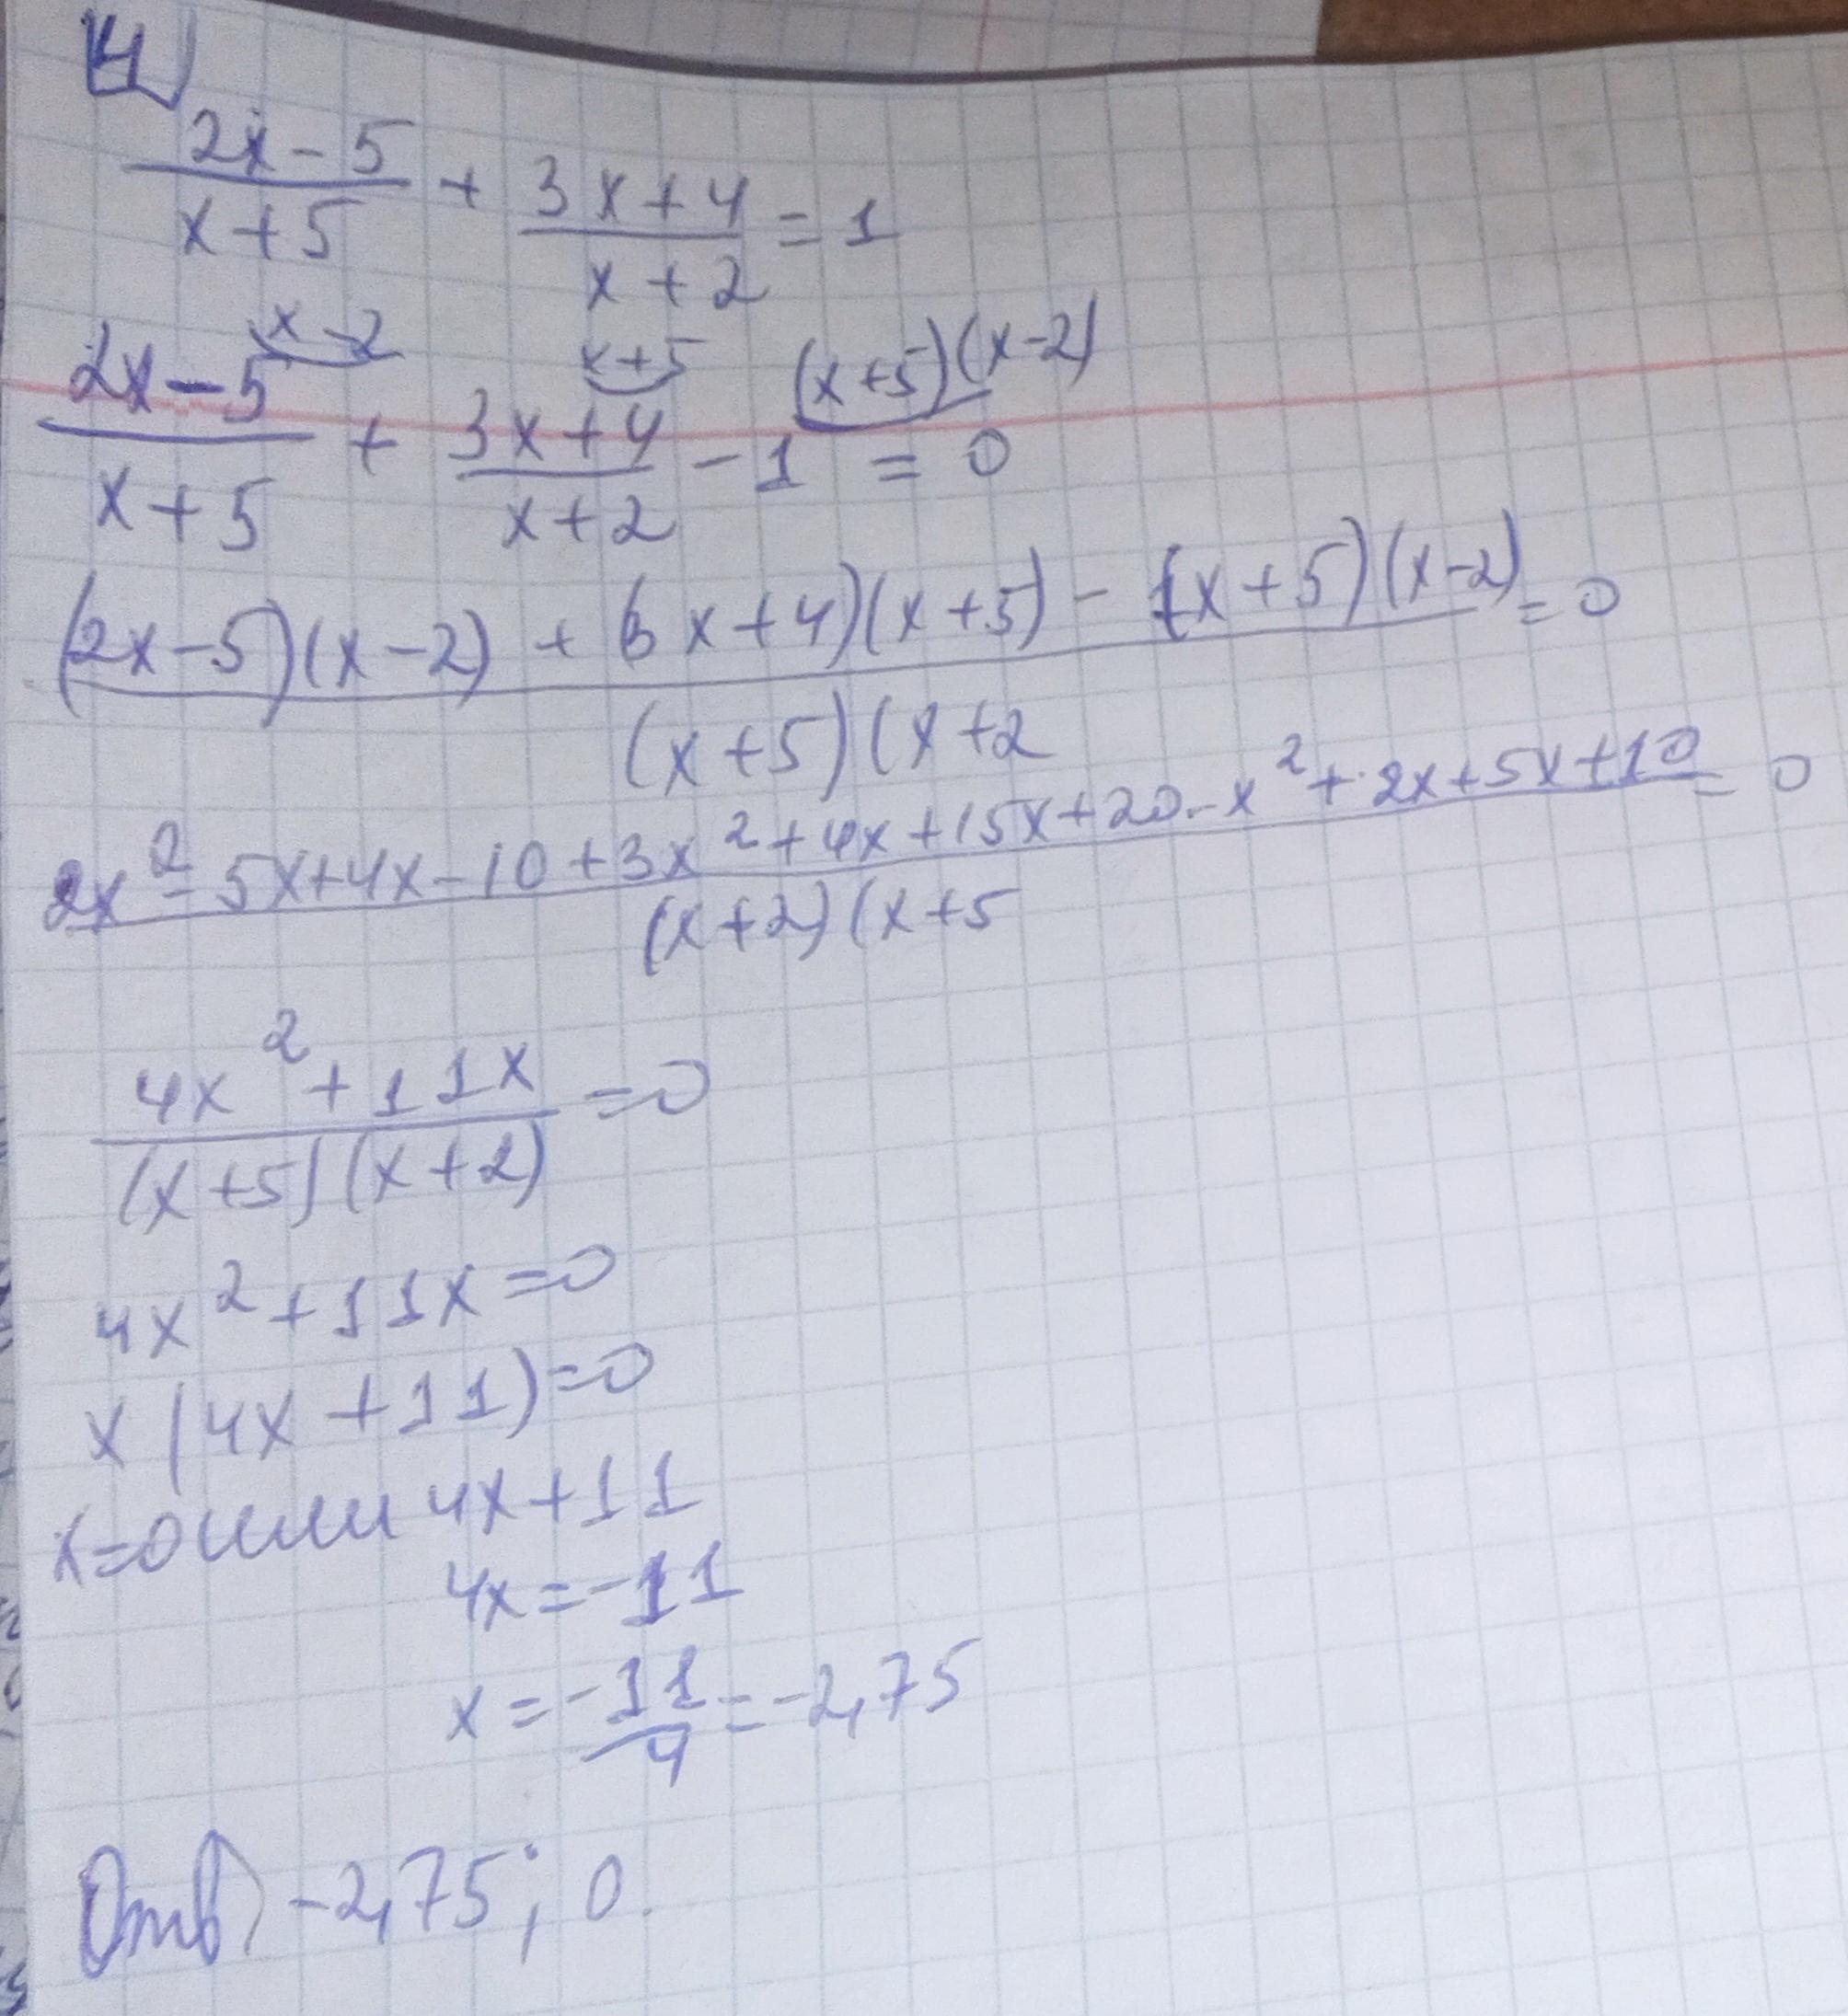 4)
(2x-5)/(x+5) + (3x+4)/(x+2) = 1
(2x-5)/(x+5) (x-2) + (3x+4)/(x+2) (x+5) - 1 (x+5)(x-2) = 0
((2x-5)(x-2) + (3x+4)(x+5) - (x+5)(x-2))/((x+5)(x+2) = 0
(2x² - 5x+4x-10+3x²+4x+15x+20-x²+2x+5x+10)/((x+2)(x+5) = 0
(4x²+11x)/((x+5)(x+2)) = 0
4x²+11x=0
x(4x+11)=0
x=0 или 4x+11
4x=-11
x=-11/4=-2,75
Отв) -2,75; 0.